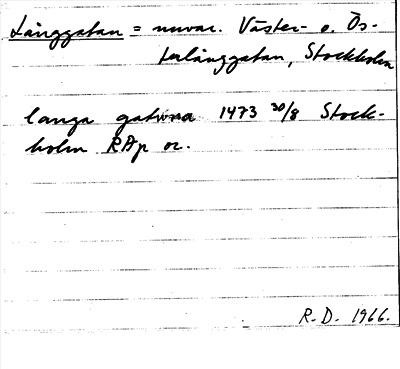 Långgatan = nuvar. Väster- o. Ös-
terlånggatan, Stockholm
langa gatwna 1473 30/8 Stock-
holm RAp or.
R. D. 1966.